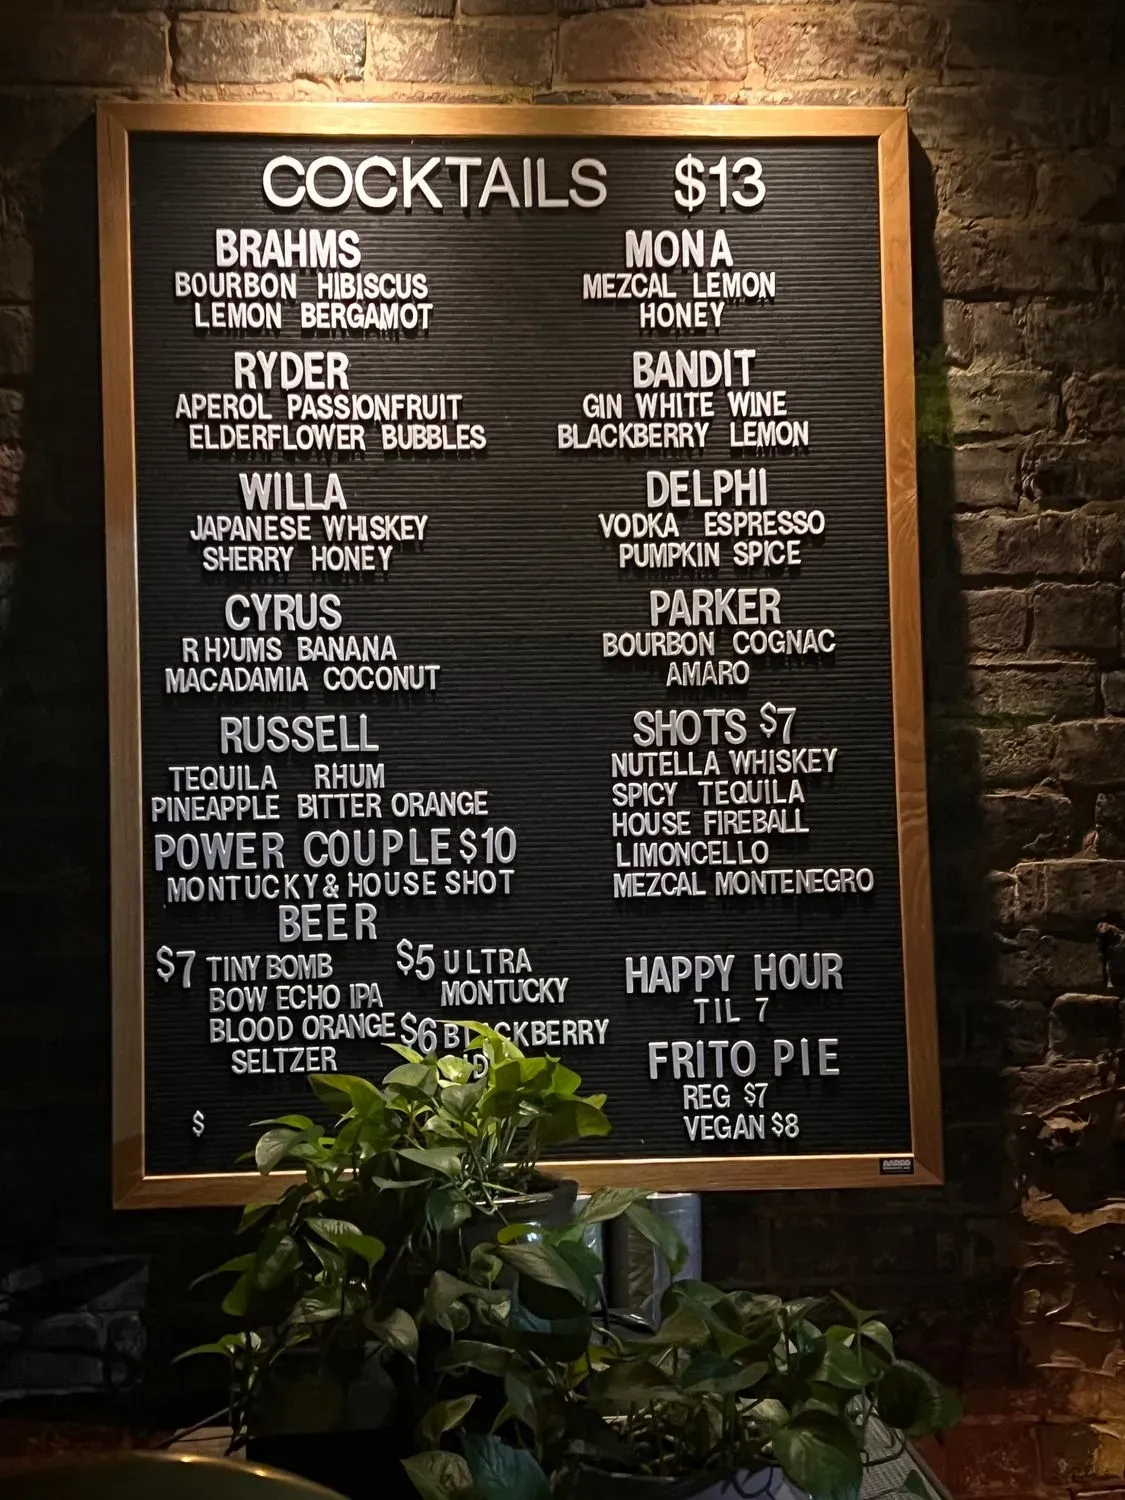 COCKTAILS $13
BRAHMS
BOURBON HIBISCUS
LEMON BERGAMOT
RYDER
APEROL PASSIONFRUIT
ELDERFLOWER BUBBLES
WILLA
JAPANESE WHISKEY
SHERRY HONEY
CYRUS
RHUMS BANANA
MACADAMIA COCONUT
RUSSELL
TEQUILA RHUM
PINEAPPLE BITTER ORANGE
POWER COUPLE $10
MONTUCKY & HOUSE SHOT
BEER
$7 TINY BOMB
BOW ECHO IPA
BLOOD ORANGE
SELTZER
$5 ULTRA
MONTUCKY
$6 BLACKBERRY
$
MONA
MEZCAL LEMON
HONEY
BANDIT
GIN WHITE WINE
BLACKBERRY LEMON
DELPHI
VODKA ESPRESSO
PUMPKIN SPICE
PARKER
BOURBON COGNAC
AMARO
SHOTS $7
NUTELLA WHISKEY
SPICY TEQUILA
HOUSE FIREBALL
LIMONCELLO
MEZCAL MONTENEGRO
HAPPY HOUR
TIL 7
FRITO PIE
REG $7
VEGAN $8